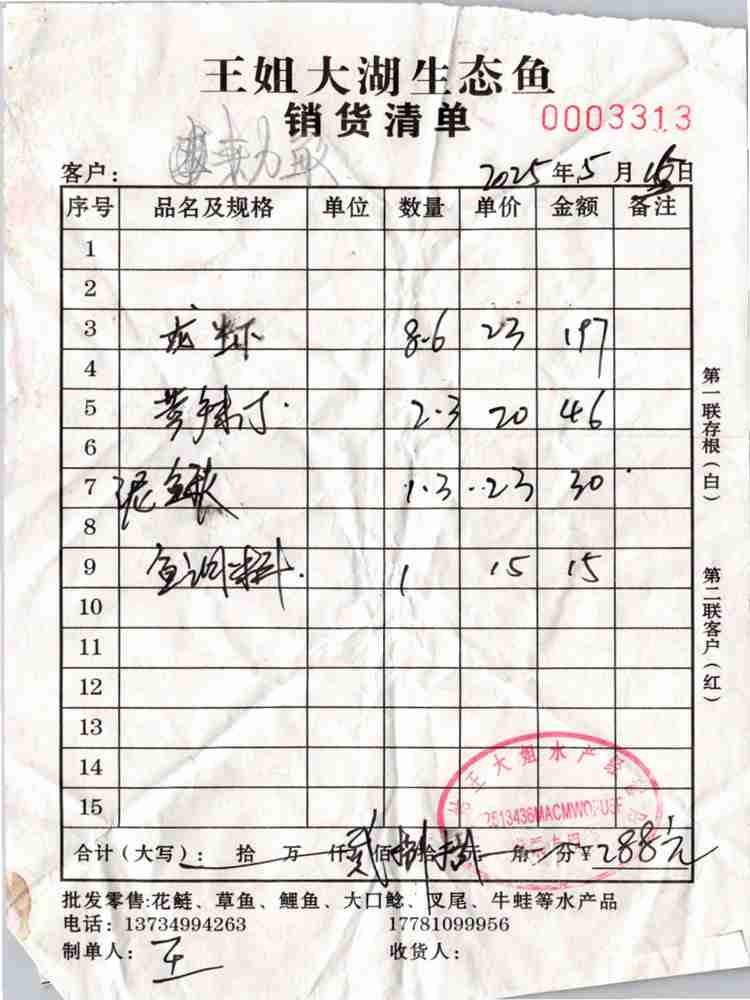 王姐大湖生态鱼
销货清单 0003313
客户： 2025年5月15日
序号 品名及规格 单位 数量 单价 金额 备注
1
2
3 龙虾 8.6 23 197
4
5 黄辣丁 2.3 20 46
6
7 泥鳅 1.3 23 30
8
9 鱼调料 1 15 15
10
11
12
13
14
15
第一联存根（白）
第二联客户（红）
王大姐水产经
合计（大写）：拾 万 仟 贰佰捌拾捌元 角 分￥288元
批发零售:花鲢、草鱼、鲤鱼、大口鲶、叉尾、牛蛙等水产品
电话：13734994263 17781099956
制单人：王 收货人：